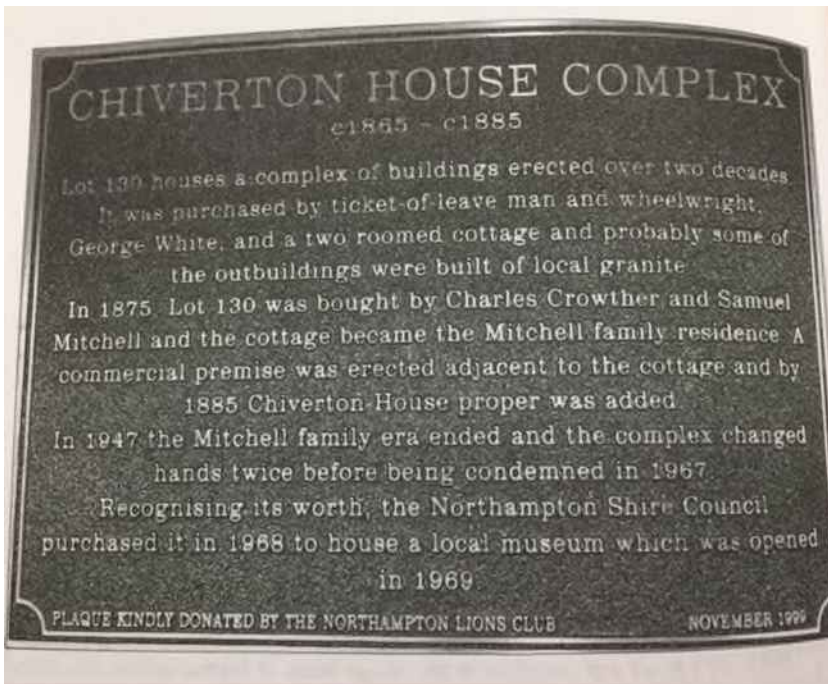 CHIVERTON HOUSE COMPLEX
c1865 - c1885
Lot 130 houses a complex of buildings erected over two decades
It was purchased by ticket-of-leave man and wheelwright,
George White, and a two roomed cottage and probably some of
the outbuildings were built of local granite
In 1875, Lot 130 was bought by Charles Crowther and Samuel
Mitchell and the cottage became the Mitchell family residence A
commercial premise was erected adjacent to the cottage and by
1885 Chiverton House proper was added
In 1947 the Mitchell family era ended and the complex changed
hands twice before being condemned in 1967
Recognising its worth, the Northampton Shire Council
purchased it in 1968 to house a local museum which was opened
in 1969
PLAQUE KINDLY DONATED BY THE NORTHAMPTON LIONS CLUB NOVEMBER 1999